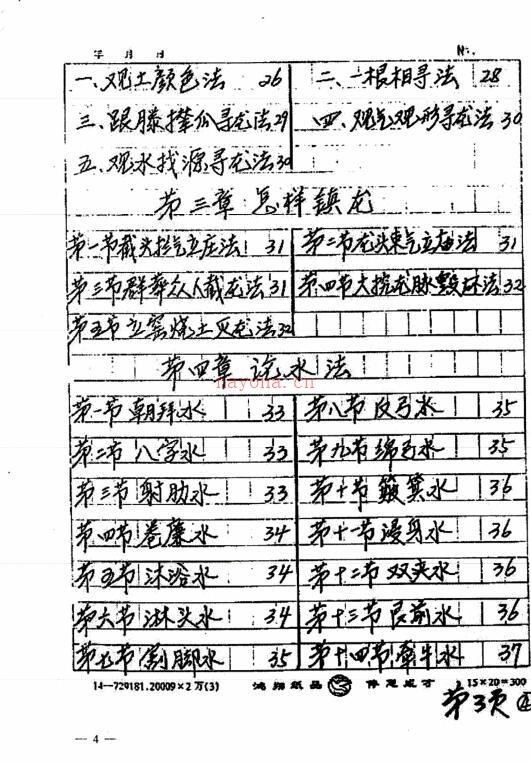 年 月 日 №.
一、观土颜色法 26 二、一根相寻法 28
三、跟藤摸瓜寻龙法29 四、观气观形寻龙法30
五、观水找源寻龙法30
第三章 怎样镇龙
第一节截头拦气立庄法 31 第二节龙头束气立庙法 31
第三节群葬众人截龙法31 第四节大挖龙脉毁坏法32
第五节立窑烧土灭龙法32
第四章 论水法
nayona.cn
第一节 朝拜水 33 第八节 反弓水 35
第二节 八字水 33 第九节 绵弓水 35
第三节 射肋水 33 第十节 簸箕水 36
第四节 卷廉水 34 第十一节 漫身水 36
第五节 沐浴水 34 第十二节 双夹水 36
第六节 淋头水 34 第十三节 艮前水 36
第七节 割脚水 35 第十四节 牵牛水 37
14—729181.20009×2万(3) 鸿翔纸品 15×20=300
第3页
— 4 —